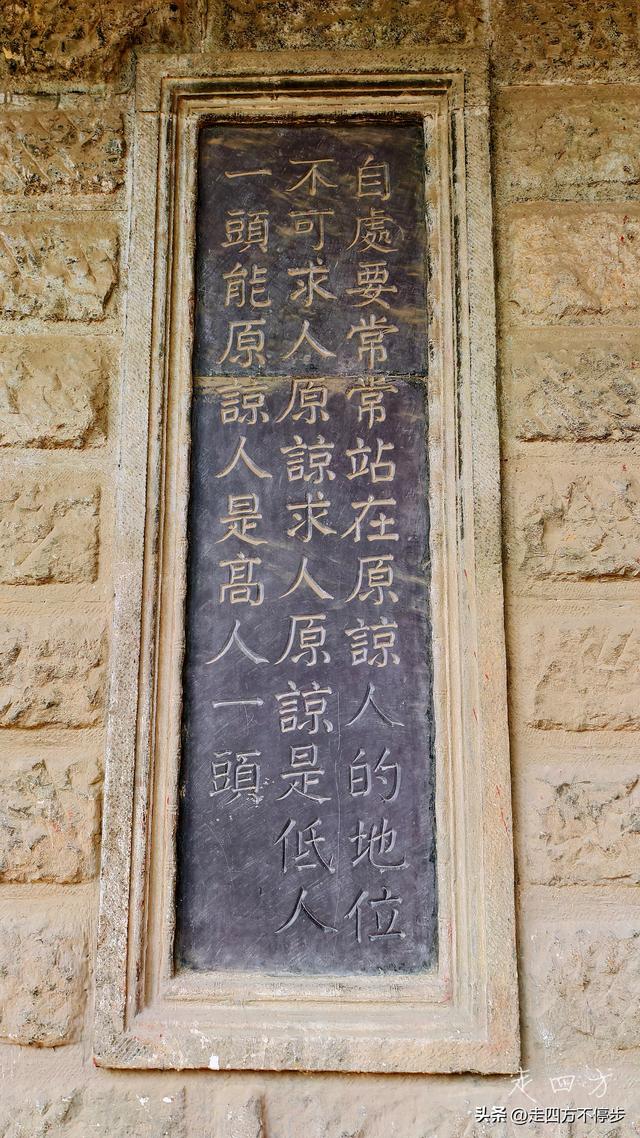 自處要常常站在原諒人的地位
不可求人原諒求人原諒是低人
一頭能原諒人是髙人一頭
走四方
头条 @走四方不停步